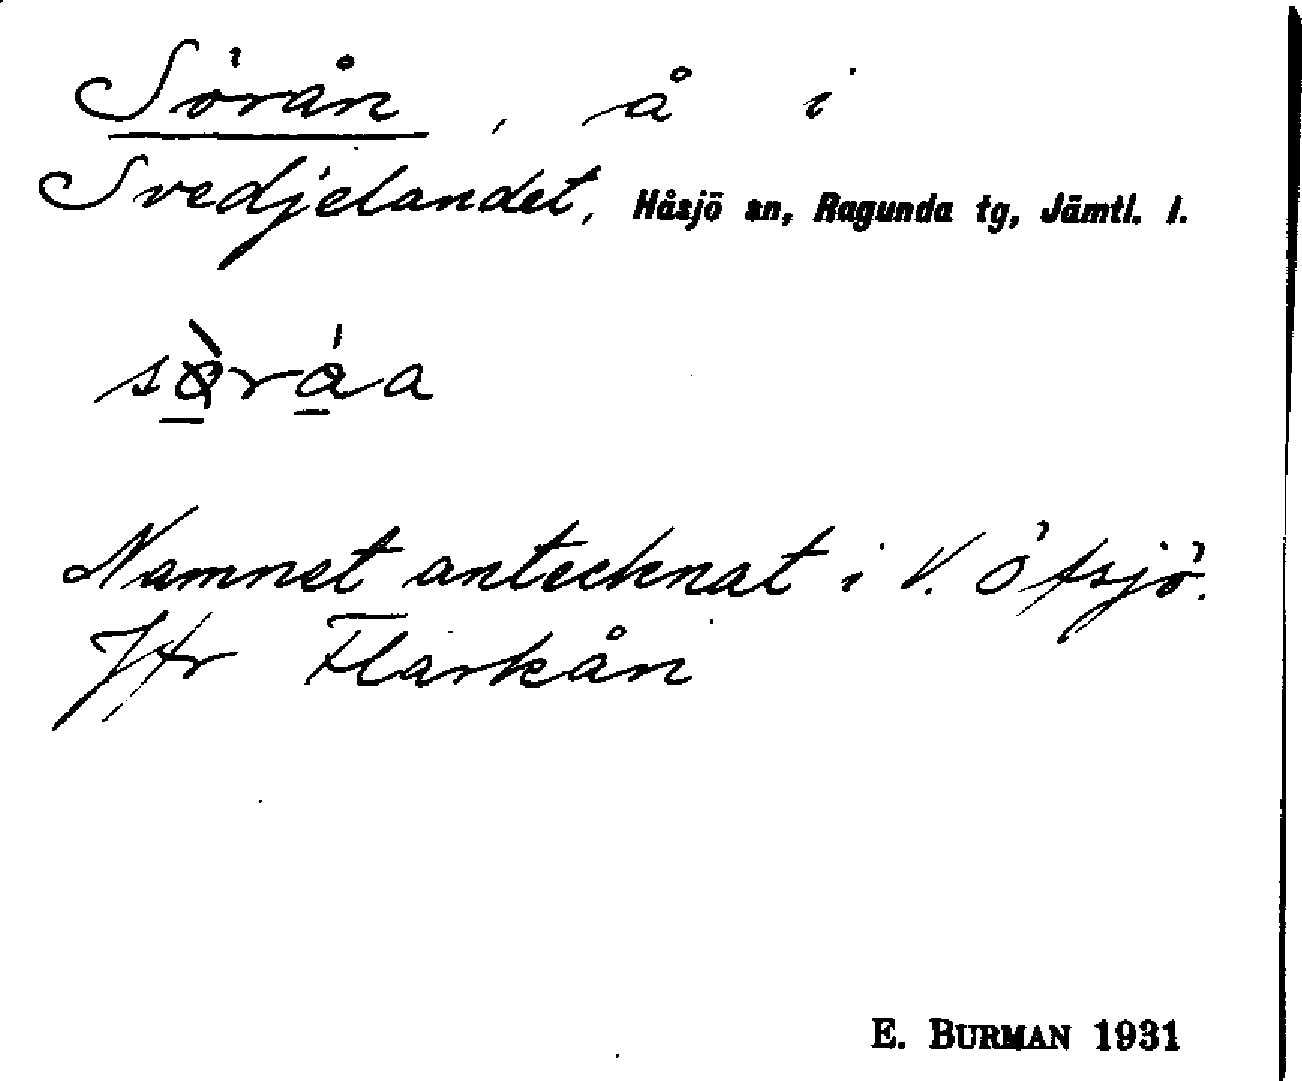 Sörån, å i
Svedjelandet, Håsjö sn, Ragunda tg, Jämtl. l.
Namnet antecknat i V. Övsjö.
Jfr Flarkån
E. BURMAN 1931